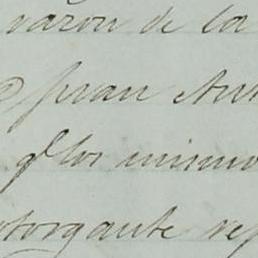 varon de la
Juan Ant
qe los mismo
otorgante re